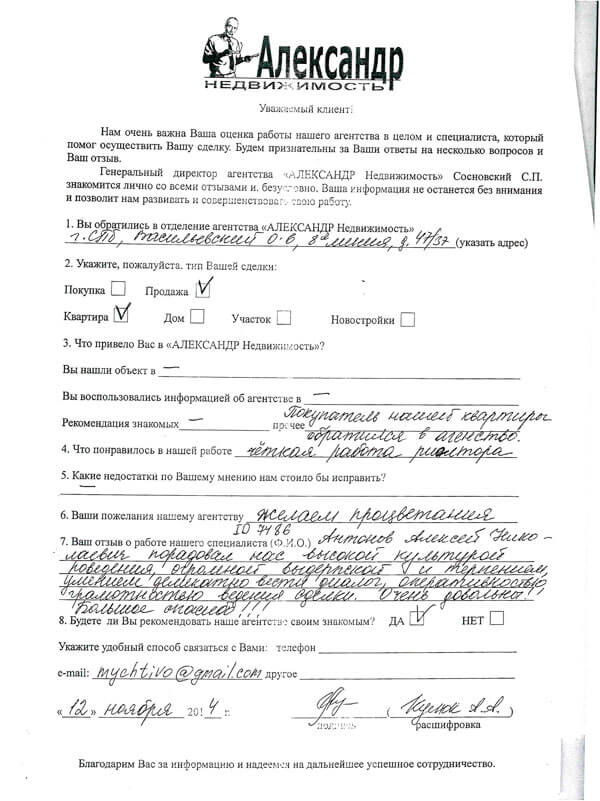 Александр
НЕДВИЖИМОСТЬ
Уважаемый клиент!
Нам очень важна Ваша оценка работы нашего агентства в целом и специалиста, который
помог осуществить Вашу сделку. Будем признательны за Ваши ответы на несколько вопросов и
Ваш отзыв.
Генеральный директор агентства «АЛЕКСАНДР Недвижимость» Сосновский С.П.
знакомится лично со всеми отзывами и, безусловно. Ваша информация не останется без внимания
и позволит нам развивать и совершенствовать свою работу.
1. Вы обратились в отделение агентства «АЛЕКСАНДР Недвижимость»
г.СПб, Васильевский О-в, 8ая линия, д. 47/37 (указать адрес)
2. Укажите, пожалуйста, тип Вашей сделки:
Покупка Продажа V
Квартира V Дом Участок Новостройки
3. Что привело Вас в «АЛЕКСАНДР Недвижимость»?
Вы нашли объект в —
Вы воспользовались информацией об агентстве в —
Рекомендация знакомых — прочее Покупатель нашей квартиры
обратился в агенство.
4. Что понравилось в нашей работе чёткая работа риэлтора
5. Какие недостатки по Вашему мнению нам стоило бы исправить?
—
6. Ваши пожелания нашему агентству желаем процветания
ID 7486
7. Ваш отзыв о работе нашего специалиста (Ф.И.О.) Антонов Алексей Нико-
лаевич порадовал нас высокой культурой
поведения, огромной выдержкой и терпением,
умением деликатно вести диалог, оперативностью
грамотностью ведения сделки. Очень довольны!!
Большое спасибо!!!
8. Будете ли Вы рекомендовать наше агентство своим знакомым? ДА V НЕТ
Укажите удобный способ связаться с Вами: телефон
e-mail: mychtivo@gmail.com другое
«12» ноября 2014 г. ( А.А.)
подпись расшифровка
Благодарим Вас за информацию и надеемся на дальнейшее успешное сотрудничество.